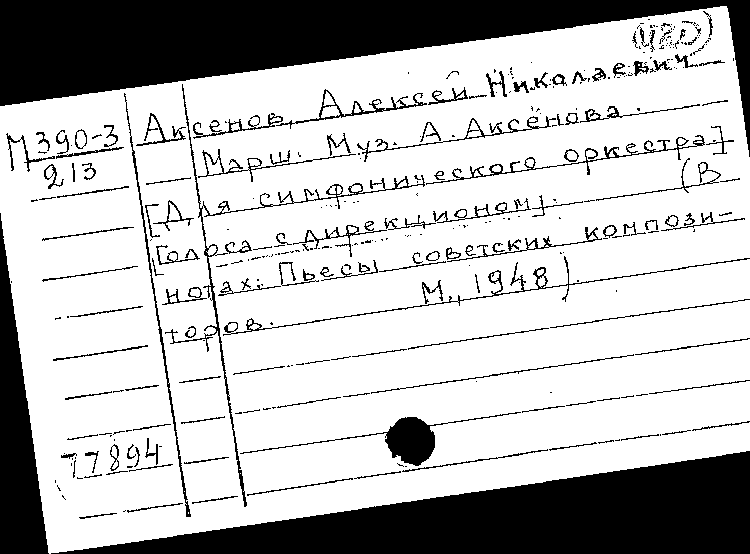 М390-3
213
Аксенов, Алексей Николаевич
Марш. Муз. А. Аксёнова.
[Для симфонического оркестра]
[Голоса с дирекционом]. (В
нотах: Пьесы советских компози-
торов. М., 1948)
77894